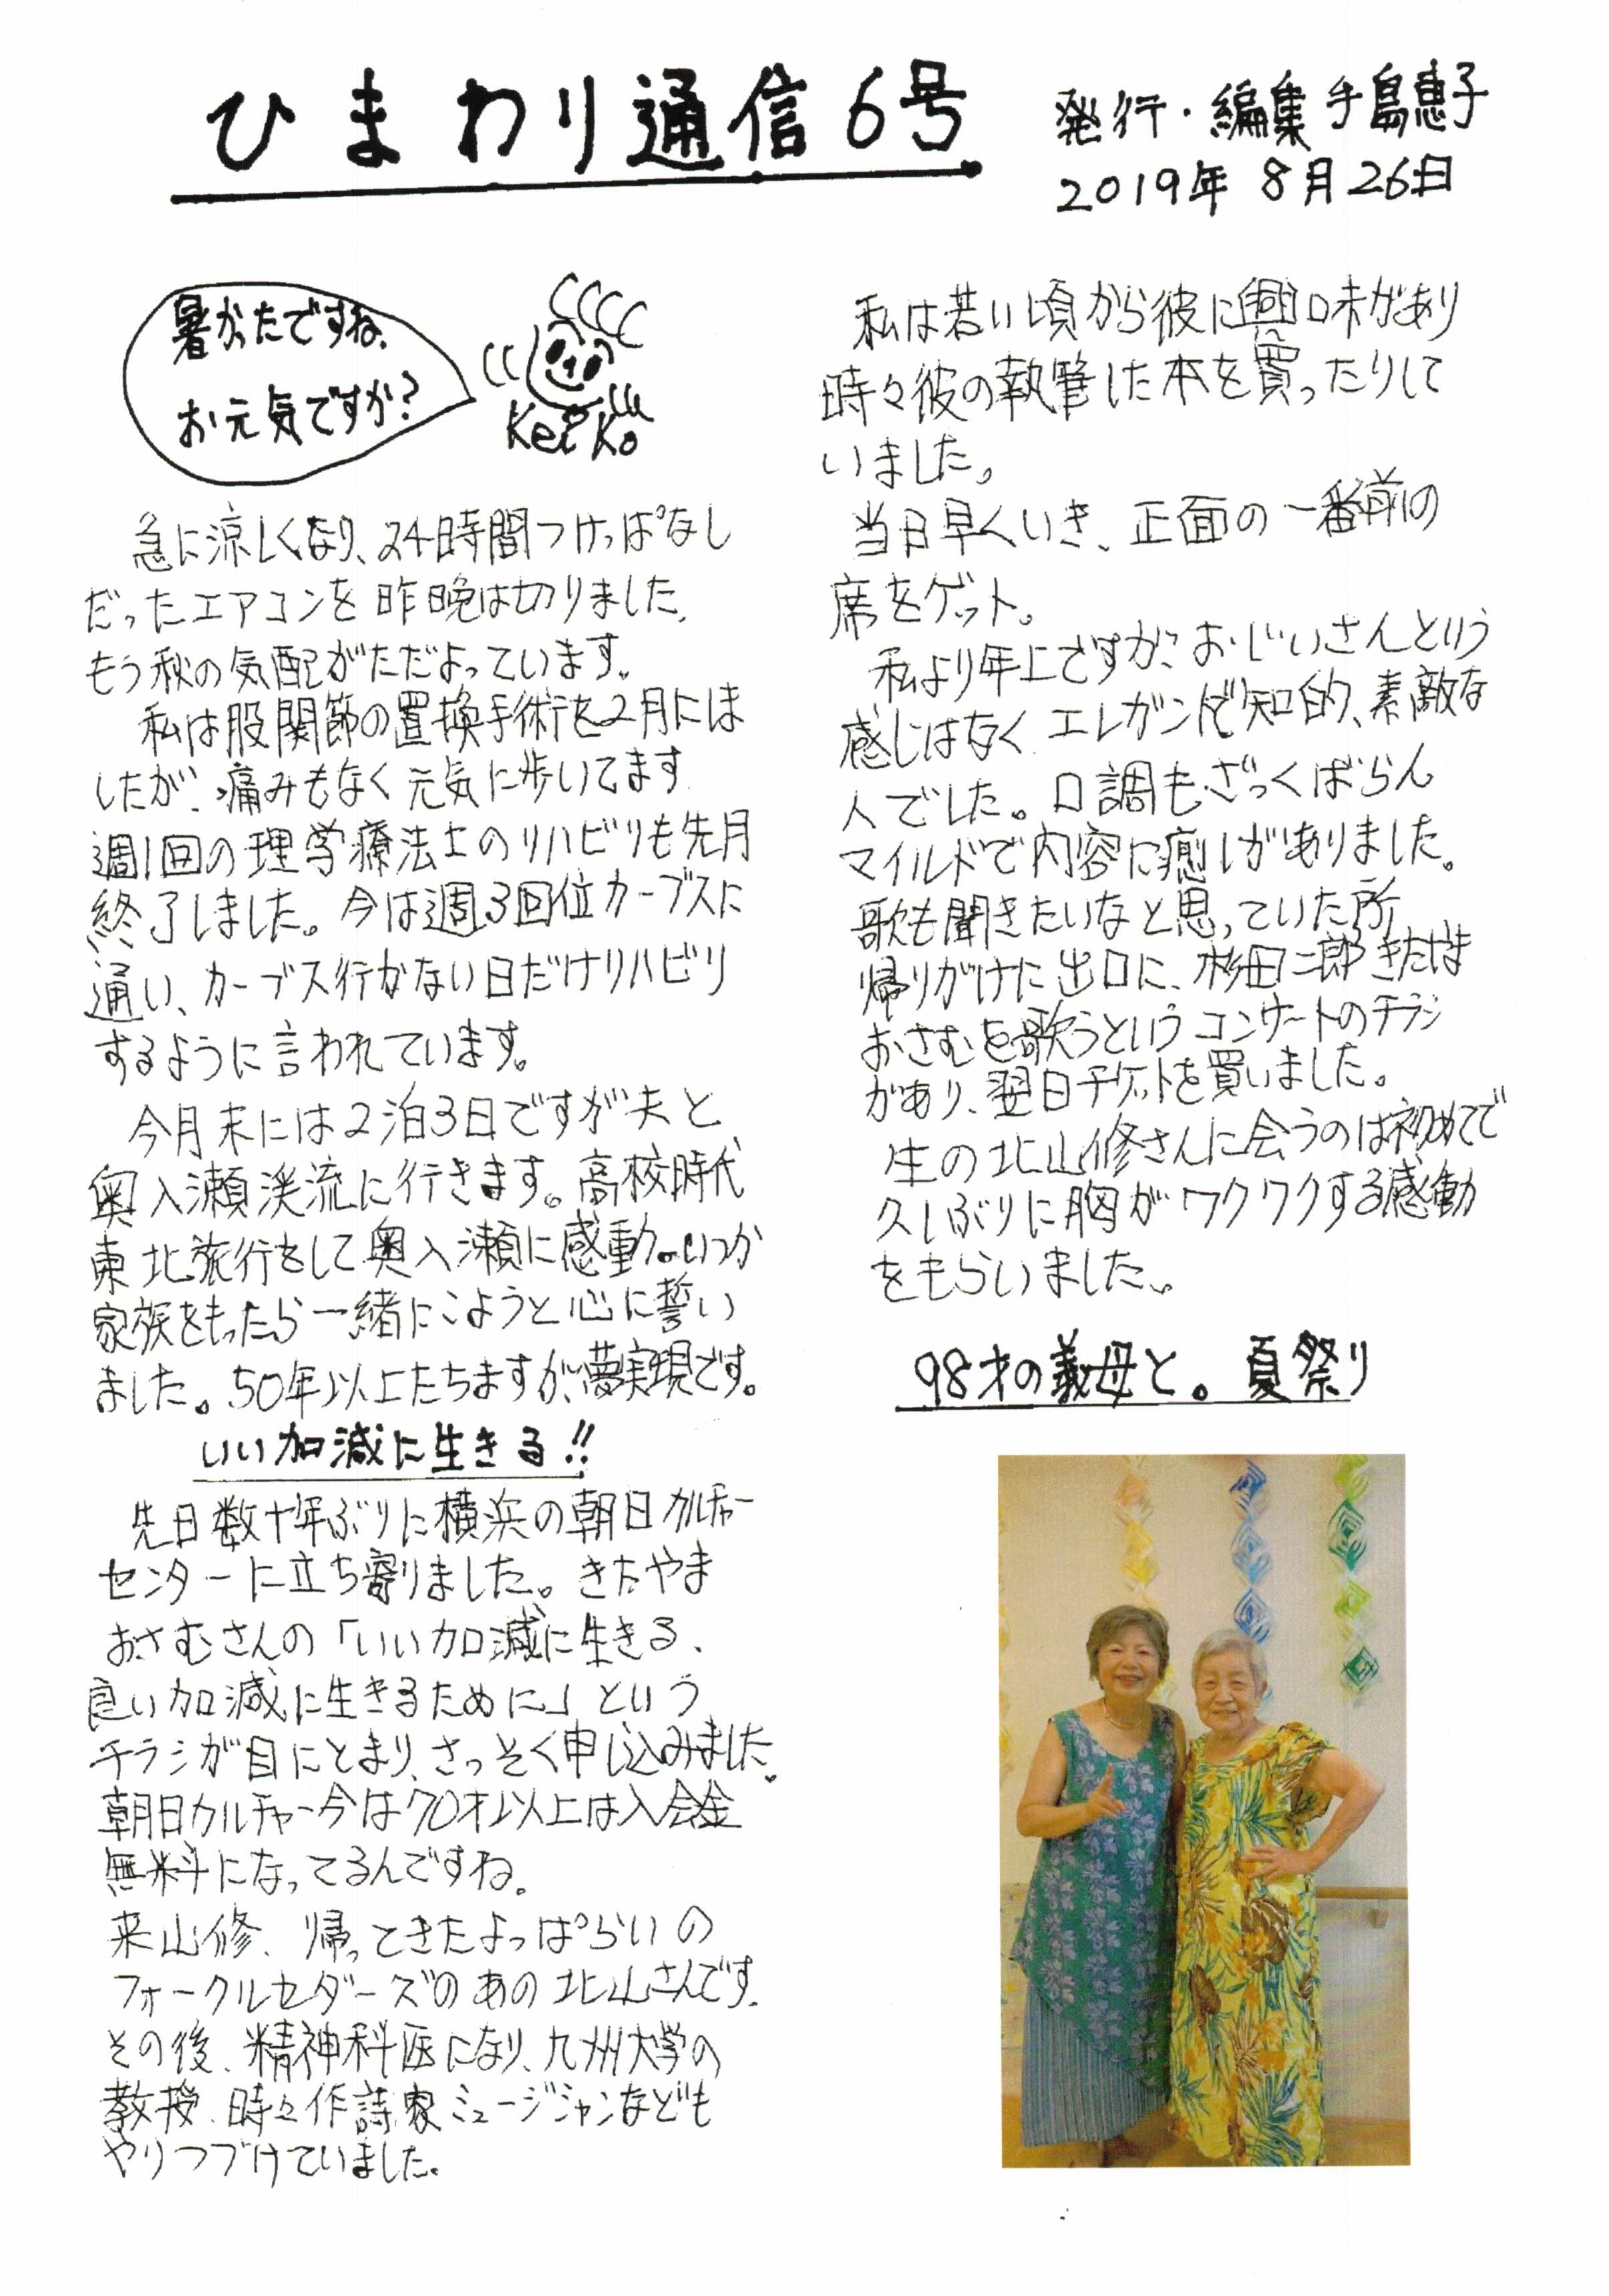 ひまわり通信6号
発行・編集 手島惠子
2019年 8月26日
暑かったですね、
お元気ですか?
KeiKo
急に涼しくなり、24時間つけっぱなし
だったエアコンを昨晩は切りました。
もう秋の気配がただよっています。
私は股関節の置換手術を2月には
したが、痛みもなく元気に歩いてます。
週1回の理学療法士のリハビリも先月
終了しました。今は週3回位カーブスに
通い、カーブス行かない日だけリハビリ
するように言われています。
今月末には2泊3日ですが夫と
奥入瀬渓流に行きます。高校時代
東北旅行をして奥入瀬に感動。いつか
家族をもったら一緒にこようと心に誓い
ました。50年以上たちますが、夢実現です。
いい加減に生きる!!
先日数十年ぶりに横浜の朝日カルチャー
センターに立ち寄りました。きたやま
おさむさんの「いい加減に生きる、
良い加減に生きるために」という
チラシが目にとまり、さっそく申し込みました。
朝日カルチャー今は70才以上は入会金
無料になってるんですね。
来山修、帰ってきたよっぱらいの
フォークルセダーズのあの北山さんです。
その後、精神科医になり、九州大学の
教授、時々作詩家ミュージシャンなども
やりつづけていました。
私は若い頃から彼に興味があり
時々彼の執筆した本を買ったりして
いました。
当日早くいき、正面の一番前の
席をゲット。
私より年上ですが、おじいさんという
感じはなく、エレガントで知的、素敵な
人でした。口調もざっくばらん
マイルドで内容に癒しがありました。
歌も聞きたいなと思っていた所
帰りがけに出口に、杉田二郎きたやま
おさむを歌うというコンサートのチラシ
があり、翌日チケットを買いました。
生の北山修さんに会うのは初めてで
久しぶりに胸がワクワクする感動
をもらいました。
98才の義母と。夏祭り